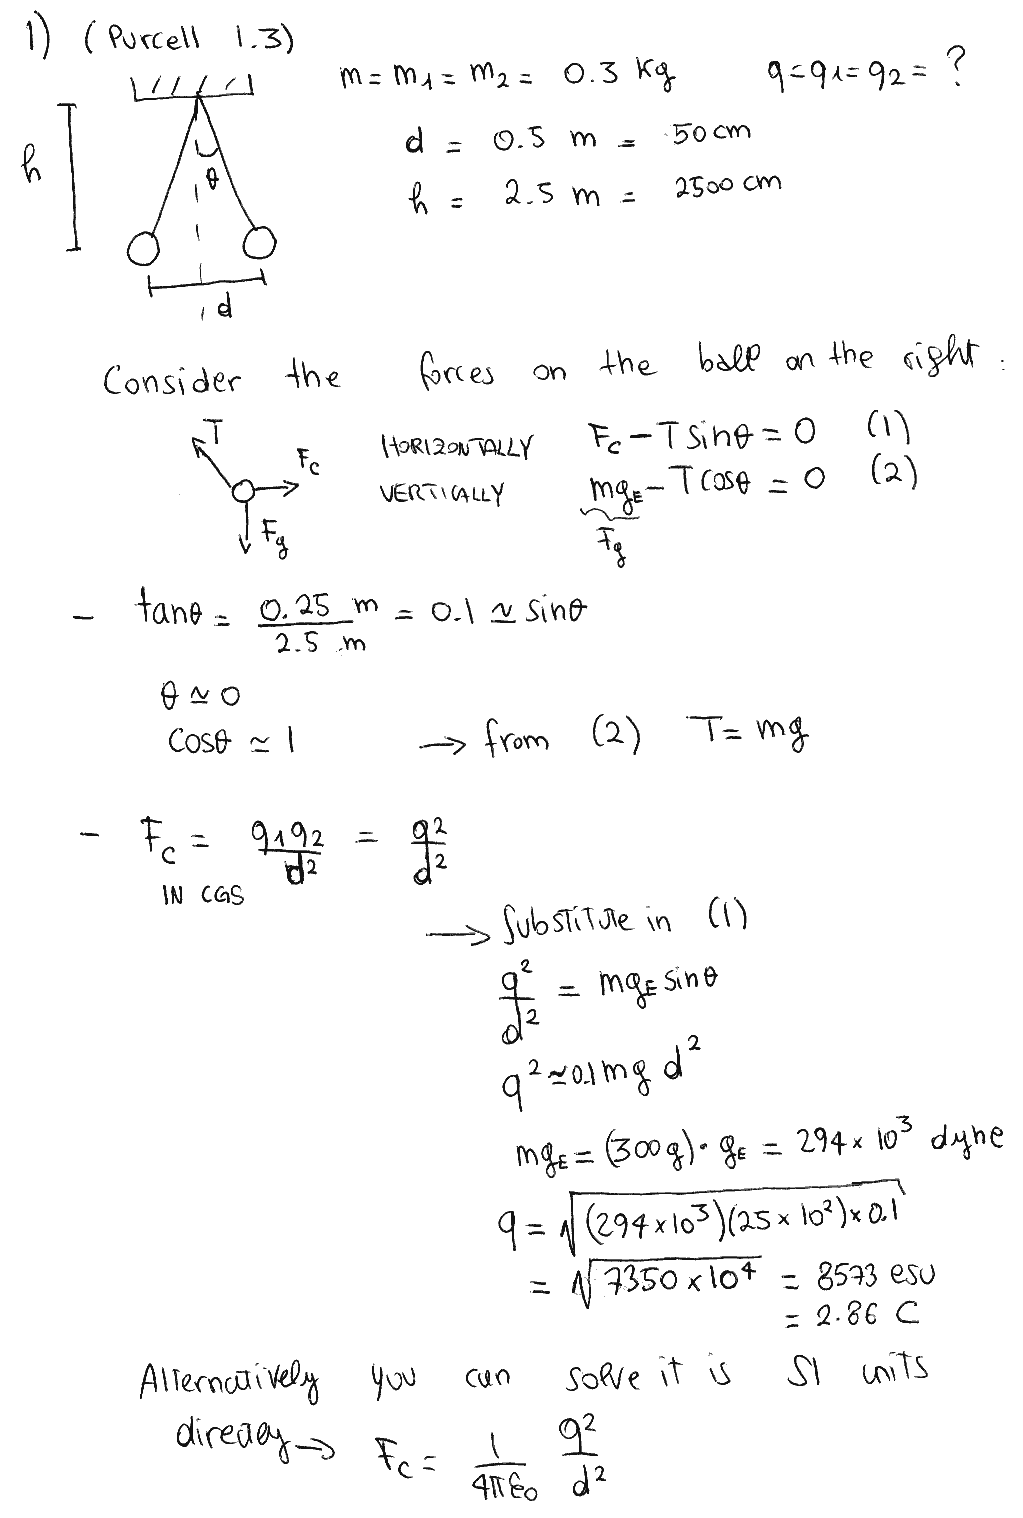 1) (Purcell 1.3)
m = m1 = m2 = 0.3 Kg q=q1=q2= ?
d = 0.5 m = 50 cm
h = 2.5 m = 2500 cm
h
θ
d
Consider the forces on the ball on the right :
T
Fc
Fg
HORIZONTALLY Fc - T sinθ = 0 (1)
VERTICALLY mgE - T cosθ = 0 (2)
Fg
- tanθ = 0.25 m / 2.5 m = 0.1 ≃ sinθ
θ ≃ 0
cosθ ≃ 1 → from (2) T = mg
- Fc = q1q2 / d² = q² / d²
IN CGS
→ Substitute in (1)
q² / d² = mgE sinθ
q² ≃ 0.1 mg d²
mgE = (300g)·gE = 294 x 10³ dyne
q = √(294 x 10³)(25 x 10²) x 0.1
= √7350 x 10⁴ = 8573 esu
= 2.86 C
Alternatively you can solve it is SI units
directly → Fc = 1 / 4πε0 q² / d²